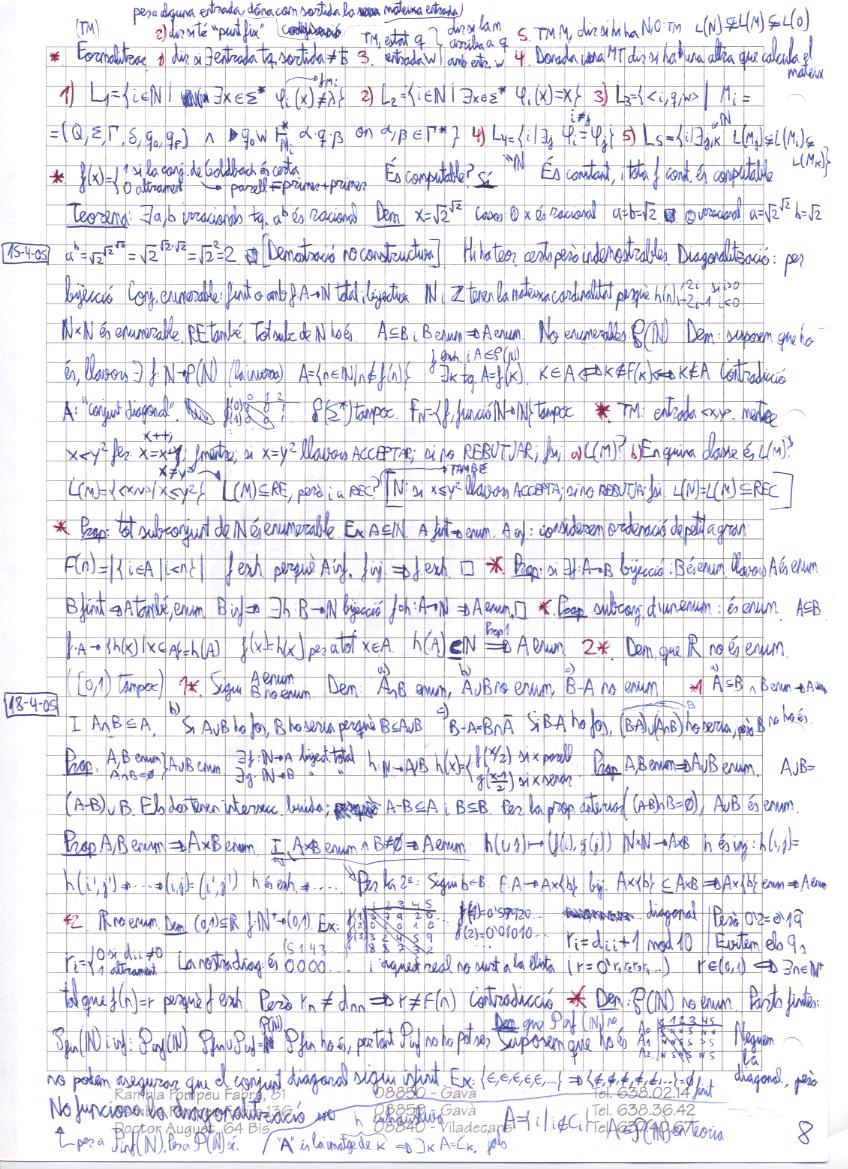 per a alguna entrada, dóna com sortida la mateixa entrada)
(TM) 2) dir si té "punt fix" TM, estat q, entrada w dir si la m arriba a q amb entr. w 5. TM M, dir si hi ha N,O: TM L(N)⊊L(M)⊊L(O)
* Formalitzar 1) dir si ∃ entrada tq sortida ≠ 3. 4. Donada una MT dir si hi ha una altra que calcula el mateix
1) L₁={i∈N | ∃x∈Σ* φᵢ(x)≠λ} 2) L₂={i∈N | ∃x∈Σ* φᵢ(x)=x} 3) L₃={<i,q,w> | Mᵢ=
=(Q,Σ,Γ,δ,q₀,q_F) ∧ q₀w ⊢* α·q·β on α,β∈Γ*} 4) L₄={i | ∃j φᵢ=φⱼ} i≠j 5) L₅={i | ∃j,k L(Mⱼ)⊊L(Mᵢ)⊊L(M_k)}
* f(x)={1 si la conj. de Goldbach és certa 0 altrament → parell = primer+primer És computable? Sí És constant, i tota f const. és computable
Teorema: ∃a,b irracionals tq. aᵇ és racional Dem x=√2^√2 casos ① x és racional a=b=√2 ② irracional a=√2^√2 b=√2
15-4-05 aᵇ=√2^√2^√2=√2^√2·√2=√2²=2 [Demostració no constructiva] Hi ha teor. certs però indemostrables. Diagonalització: per
bijecció Conj. enumerable: finit o amb f:A→N total i bijectiva N i Z tenen la mateixa cardinalitat perquè h(n)= 2i si i>0 -2i+1 i<0
N×N és enumerable, RE també. Tot subc de N ho és A⊆B i B enum ⇒ A enum. No enumerables P(N) Dem: suposem que ho
és, llavors ∃ f:N→P(N) (la inversa) A={n∈N | n∉f(n)} f exh. i A∈P(N) ∃k tq. A=f(k). K∈A ⇔ K∉F(k) ⇔ K∉A Contradicció
A: "conjunt diagonal". P(Σ*) tampoc. F_N={f, funció N→N} tampoc * TM: entrada <x,y>. mentre
x<y² fer x=x+1; fmentre, si x=y² llavors ACCEPTAR; si no REBUTJAR; fsi a) L(M)? b) En quina classe és L(M)?
L(M)={<x,y> | x≤y²} L(M)⊆RE, però i a REC? TAMBÉ [N: si x≤y² llavors ACCEPTA; si no REBUTJA fsi. L(N)=L(M)⊆REC]
* Prop: tot subconjunt de N és enumerable. Ex A⊆N. A finit → enum. A inf: considerem ordenació de petit a gran
F(n)=|{i∈A | i<n}| f exh. perquè A inf, f inj. ⇒ f exh. □ * Prop: si ∃f:A→B bijecció i B és enum llavors A és enum
B finit ⇒ A també, enum B inf ⇒ ∃h:B→N bijecció f∘h:A→N ⇒ A enum. □ * Prop subconj. d'un enum. és enum. A⊆B.
f:A→{h(x) | x∈A}=h(A) f(x)=h(x) per a tot x∈A. h(A)⊆N Prop1 ⇒ A enum 2*. Dem. que R no és enum.
([0,1) tampoc) 1*. Sigui A enum B no enum. Dem: a) A∩B enum, b) A∪B no enum, c) B-A no enum *1 a) A⊆B ∧ B enum → A enum
18-4-05 I A∩B⊆A. b) Si A∪B ho fos, B ho seria perquè B⊆A∪B c) B-A=B∩Ā Si B-A ho fos, (B-A)∪(A∩B) ho seria, però B no ho és.
Prop. A,B enum A∩B=∅ } A∪B enum ∃f:N→A biject. total ∃g:N→B " " h:N→A∪B h(x)={f(x/2) si x parell g((x-1)/2) si x senar Prop A,B enum ⇒ A∪B enum. A∪B=
(A-B)∪B. Els dos tenen intersecc. buida; A-B⊆A i B⊆B. Per la prop. anterior ((A-B)∩B=∅), A∪B és enum.
Prop A,B enum ⇒ A×B enum. I, A×B enum ∧ B≠∅ ⇒ A enum. h(i,j)↦(f(i),g(j)) N×N→A×B h és inj.: h(i,j)=
h(i',j') ⇒ ... ⇒ (i,j)=(i',j') h és exh. ⇒ ..... Per la 2ª: Sigui b∈B F:A→A×{b} bij. A×{b}⊆A×B ⇒ A×{b} enum ⇒ A enum
*2 R no enum. Dem (0,1)⊆R f:N⁺→(0,1) Ex: f(1)=0'57920... f(2)=0'01010... diagonal Però 0'2=0'19
rᵢ={0 si dᵢᵢ≠0 1 altrament La nostra diag. és 5143 0000... i aquest real no surt a la llista rᵢ=dᵢᵢ+1 mod 10 Evitem els 9s (r=0'r₁r₂r₃r₄...) r∈(0,1) ⇒ ∃n∈N⁺
tal que f(n)=r perquè f exh. Però rₙ≠dₙₙ ⇒ r≠F(n) Contradicció * Dem: P(N) no enum. Parts finites:
P_fin(N) i inf: P_inf(N) P_fin∪P_inf=P(N) P_fin ho és, per tant P_inf no ho pot ser. Dem que P_inf(N) no. Suposem que ho és Neguem la diagonal, però
no podem assegurar que el conjunt diagonal sigui infinit. Ex: {∈,∈,∈,∈,∈,...} ⇒ {∉,∉,∉,∉,∉,...}=∅ finit
Rambla Pompeu Fabra, 81 08850 - Gavà Tel. 638.02.14
No funciona la diagonalització
08850 - Gavà Tel. 638.36.42
Doctor Auguet, 64 Bis 08840 - Viladecans
↑ per a P_inf(N). Per a P(N) sí. "A" és la imatge de k ⇒ ∃k A=C_k, A={i | i∉Cᵢ} A∈P(N) en teoria 8